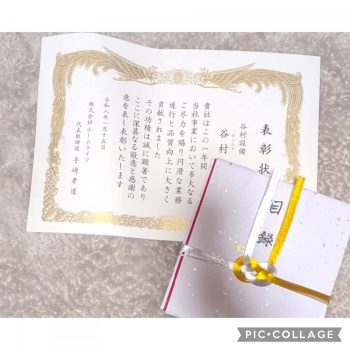 表彰状
谷村設備
谷村
貴社はこの一年間
当社事業において多大なる
ご尽力を賜り円滑な業務
遂行と品質向上に大きく
貢献されました
その功績は誠に顕著であり
ここに深甚なる敬意と感謝の
意を表し表彰いたします
令和八年一月十五日
株式会社ホームライフ
代表取締役 手崎孝道
目録
PIC•COLLAGE